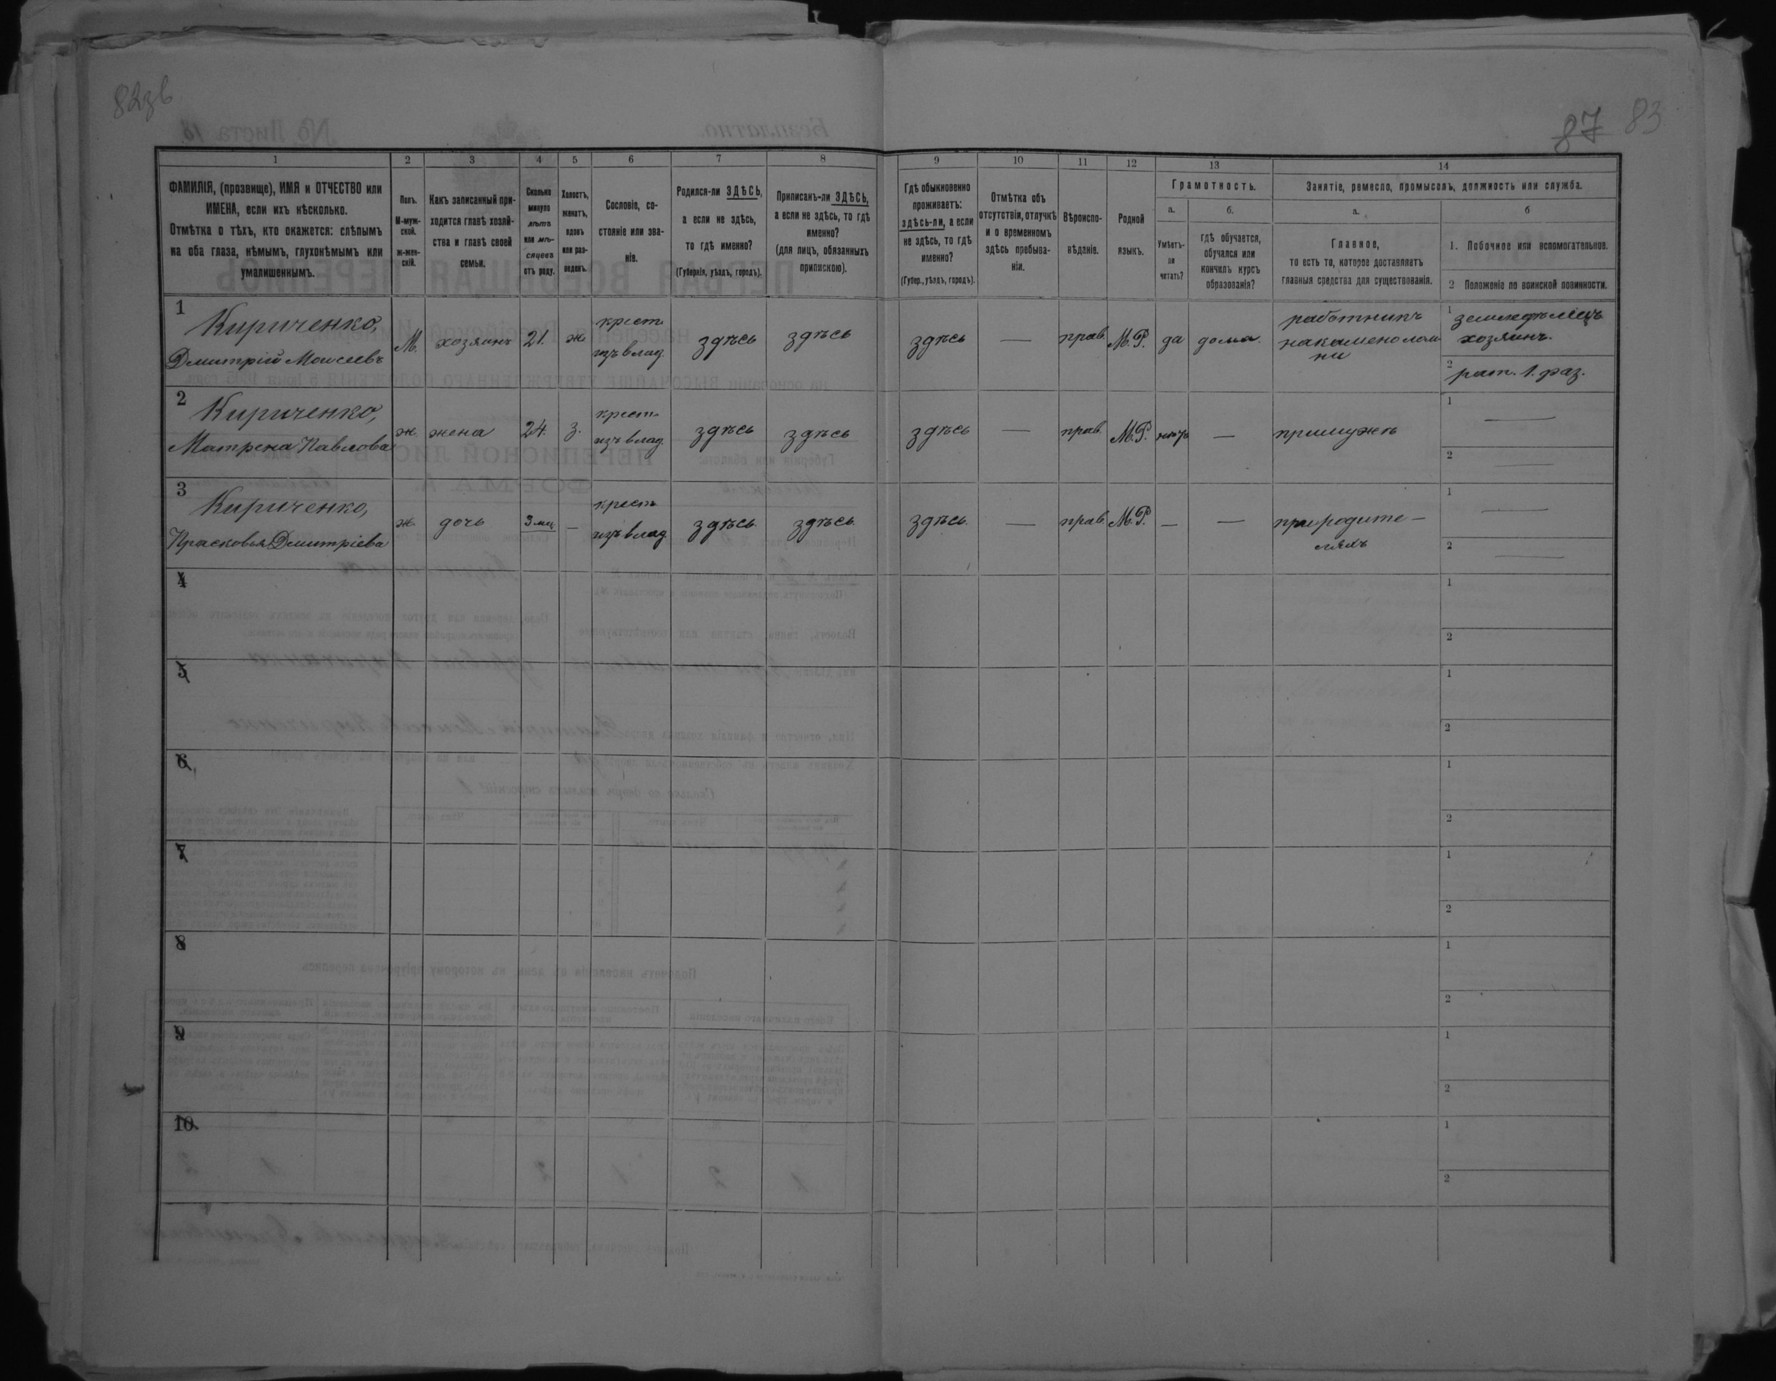 82зв
87 83
1 2 3 4 5 6 7 8 9 10 11 12 13 14
ФАМИЛІЯ, (прозвище), ИМЯ и ОТЧЕСТВО или
ИМЕНА, если ихъ нѣсколько.
Отмѣтка о тѣхъ, кто окажется: слѣпымъ
на оба глаза, нѣмымъ, глухонѣмымъ или
умалишеннымъ.
Полъ.
М-муж-
ской.
ж-жен-
скій.
Какъ записанный при-
ходится главѣ хозяй-
ства и главѣ своей
семьи.
Сколько
минуло
лѣтъ
или мѣ-
сяцевъ
отъ роду.
Холостъ,
женатъ,
вдовъ
или раз-
веденъ.
Сословіе, со-
стояніе или зва-
ніе.
Родился-ли ЗДѢСЬ,
а если не здѣсь,
то гдѣ именно?
(Губернія, уѣздъ, городъ).
Приписанъ-ли ЗДѢСЬ,
а если не здѣсь, то гдѣ
именно?
(для лицъ, обязанныхъ
припискою).
Гдѣ обыкновенно
проживаетъ:
здѣсь-ли, а если
не здѣсь, то гдѣ
именно?
(Губер., уѣздъ, городъ).
Отмѣтка объ
отсутствіи, отлучкѣ
и о временномъ
здѣсь пребыва-
ніи.
Вѣроиспо-
вѣданіе.
Родной
языкъ.
Грамотность.
а.
Умѣетъ-
ли
читать?
б.
гдѣ обучается,
обучался или
кончилъ курсъ
образованія?
Занятіе, ремесло, промыселъ, должность или служба.
а.
Главное,
то есть то, которое доставляетъ
главныя средства для существованія.
б
1. Побочное или вспомогательное.
2 Положеніе по воинской повинности.
1
Кириченко,
Дмитрій Моисеевъ
М. хозяинъ 21. ж
крест.
изъ влад.
здѣсь здѣсь здѣсь — прав. М.Р. да дома.
работникъ
на каменолом
ни
1 земледѣлецъ
хозяинъ.
2 рат. 1. раз.
2
Кириченко,
Матрена Павлова
ж. жена 24. з.
крест.
изъ влад
здѣсь здѣсь здѣсь — прав. М.Р. нѣтъ — при мужѣ
1 —
2 —
3
Кириченко,
Прасковья Дмитріева
ж. дочь 3 мц —
крест.
изъ влад
здѣсь здѣсь здѣсь. — прав. М.Р. — — при родите-
ляхъ
1 —
2 —
4
1
2
5
1
2
6
1
2
7
1
2
8
1
2
9
1
2
10.
1
2